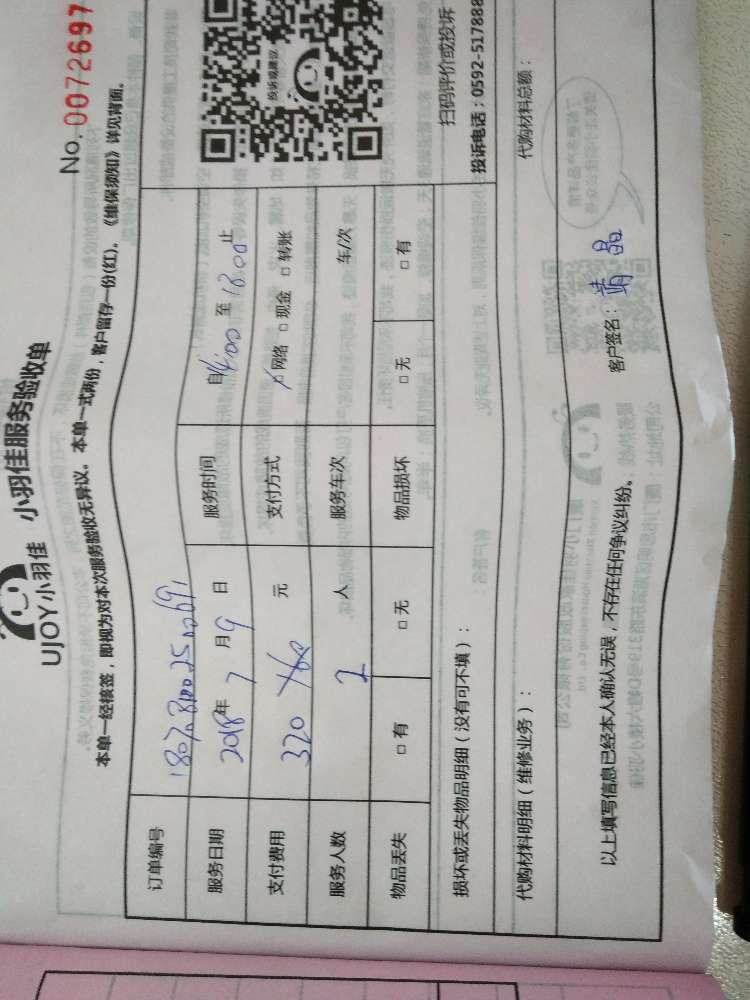 UJOY小羽佳 小羽佳服务验收单
No. 0072697
本单一经核签，即视为对本次服务验收无异议。本单一式两份，客户留存一份(红)。《维保须知》详见背面。
订单编号
服务日期 2018年 7 月 9 日 服务时间 自 14:00 至 18:00 止
支付费用 320 元 支付方式 网络 □ 现金 □ 转账
服务人数 2 人 服务车次 车/次
物品丢失 □ 有 □ 无 物品损坏 □ 无 □ 有
投诉或建议
扫码评价或投诉
投诉电话：0592-517888
损坏或丢失物品明细（没有可不填）：
代购材料明细（维修业务）： 代购材料总额：
以上填写信息已经本人确认无误，不存在任何争议纠纷。 客户签名：